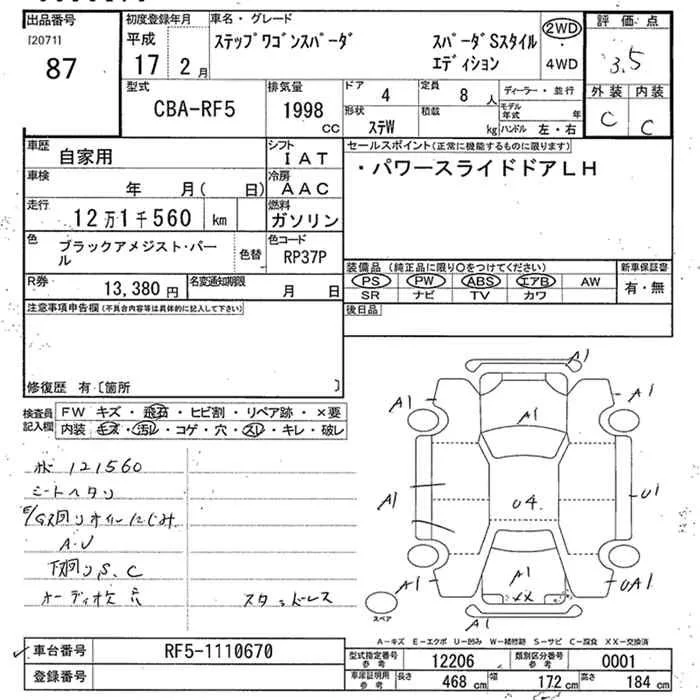 出品番号
[2071]
87
初度登録年月
平成
17 2月
車名・グレード
ステップワゴンスパーダ
スパーダSスタイル
エディション
2WD
・
4WD
評価点
3.5
外装 内装
C C
型式
CBA-RF5
排気量
1998
CC
ドア
4
定員
8 人
形状
ステW
積載
kg
ディーラー・並行
モデル
年式 年
ハンドル 左・右
車歴
自家用
シフト
IAT
車検
年 月( 日)
冷房
AAC
走行
12万1千560 km
燃料
ガソリン
色
ブラックアメジスト・パー
ル
色替
色コード
RP37P
セールスポイント(正常に機能するものに限ります)
・パワースライドドアLH
R券
13,380 円
名変通知期限
月 日
装備品 (純正品に限り○をつけてください)
PS PW ABS エアB AW
SR ナビ TV カワ
新車保証書
有・無
後日品
注意事項申告欄(不具合内容等は具体的に記入して下さい)
修復歴 有〔箇所 〕
検査員
記入欄
FW キズ・飛石・ヒビ割・リペア跡・×要
内装 キズ・汚レ・コゲ・穴・スレ・キレ・破レ
121560
シートヘタリ
E/GS回リオイルにじみ
A・U
下回りS、C
オーディオ欠品
スタッドレス
A1
A1
A1
A1
A1
U4
U1
A1
A1
XX
UA1
A1
スペア
A-キズ E-エクボ U-凹み W-補修跡 S-サビ C-腐食 XX-交換済
車台番号
RF5-1110670
登録番号
型式指定番号
参考
12206
類別区分番号
参考
0001
車庫証明用
参考
長さ
468 cm
幅
172 cm
高さ
184 cm